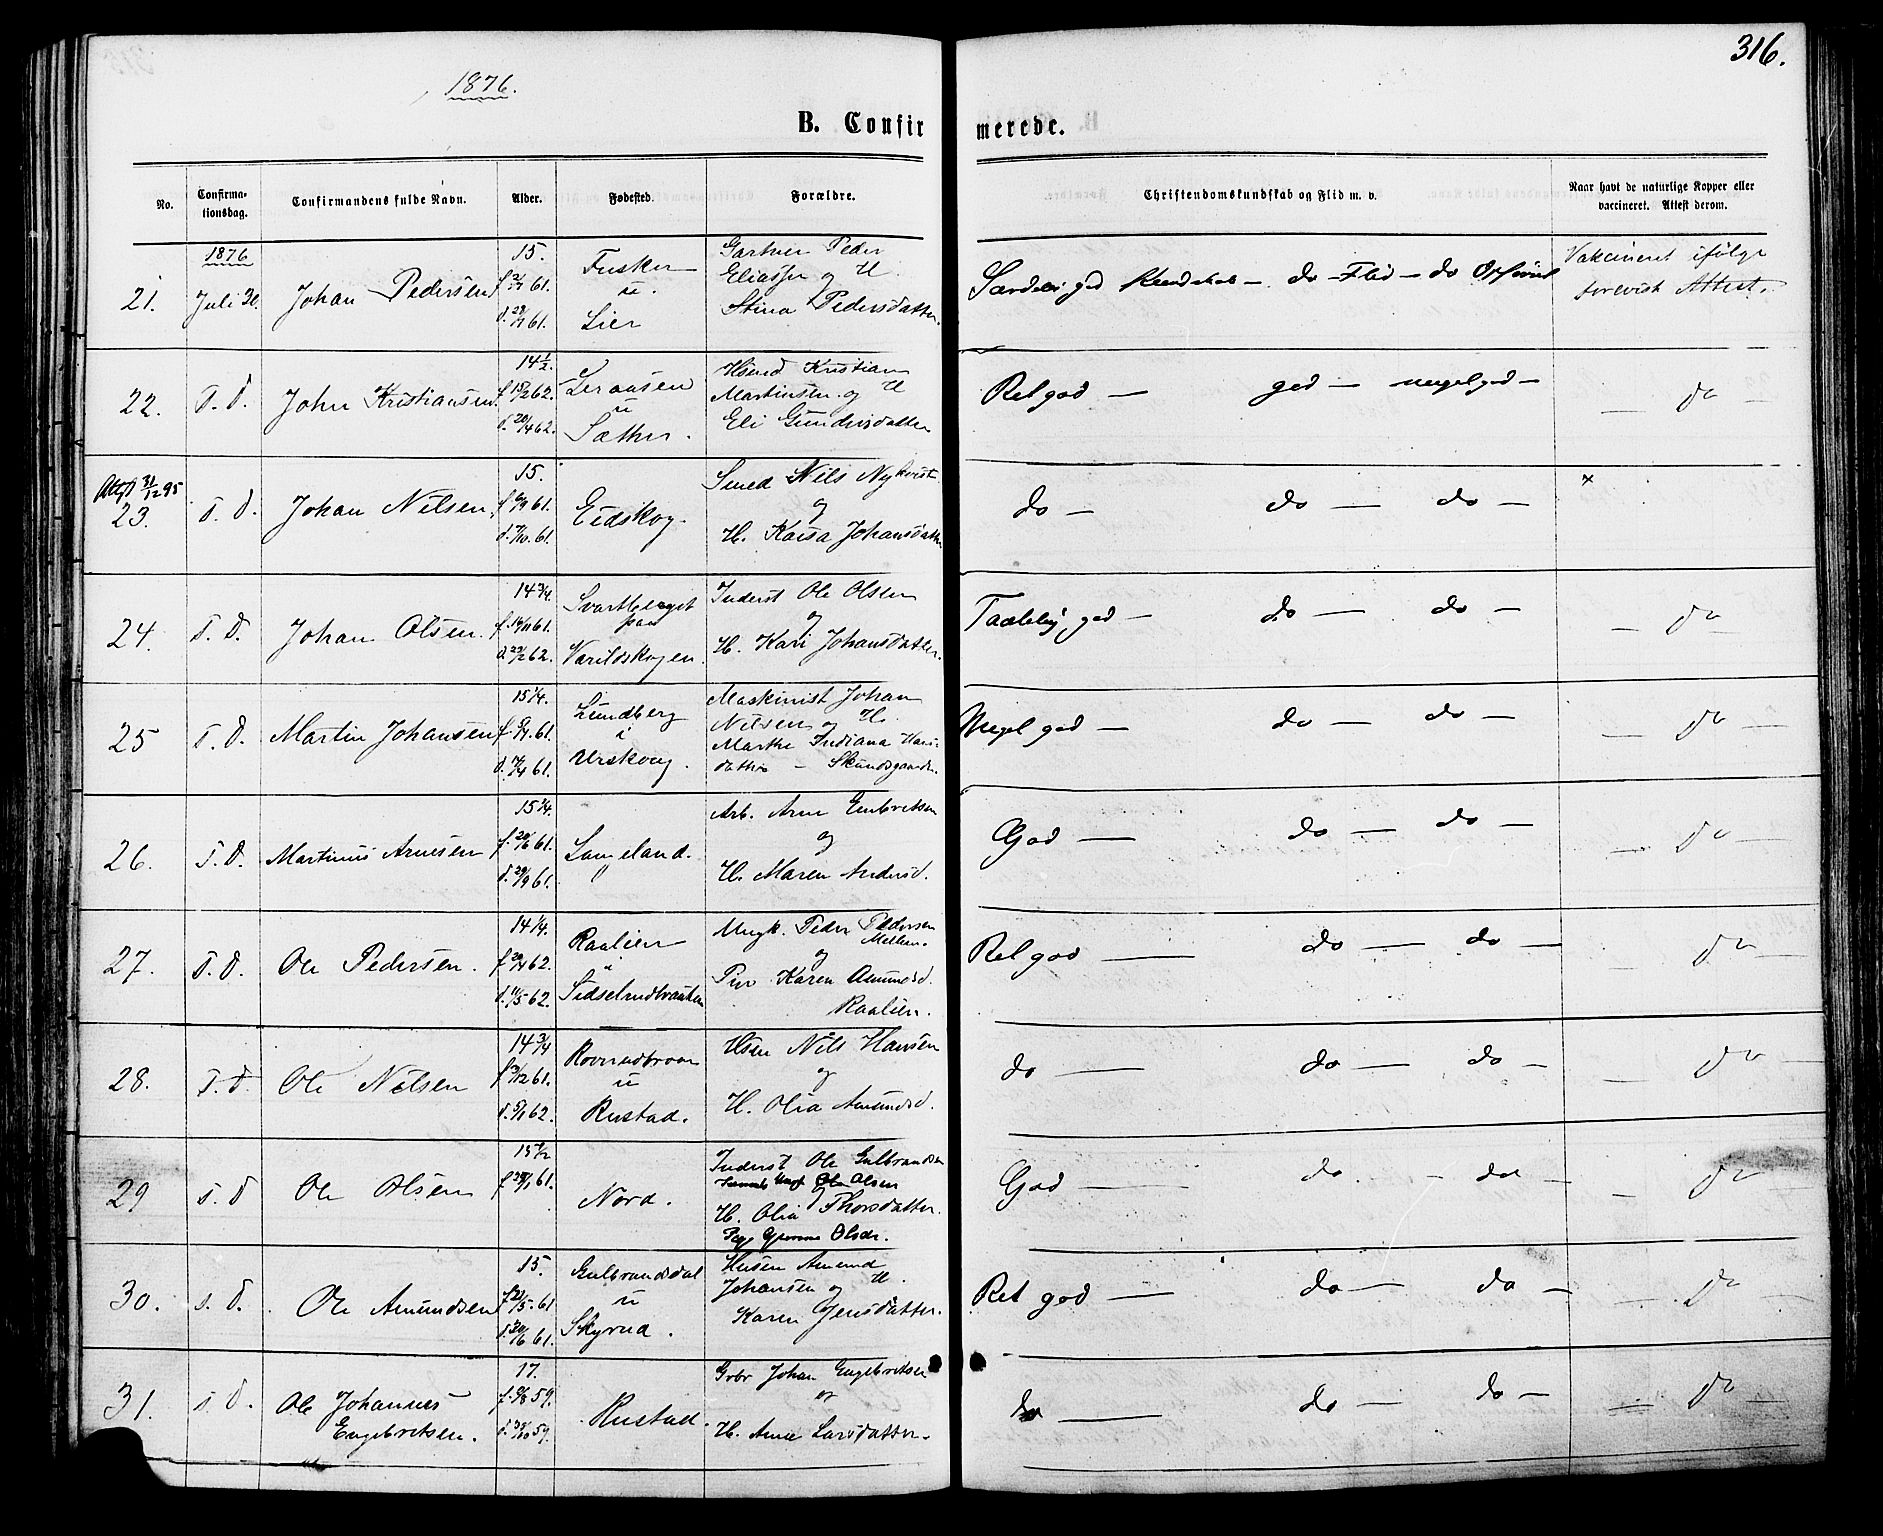 316.
1876.
B. Confirmerede.
No.
Confirma-
tionsdag.
Confirmandens fulde Navn.
Alder.
Fødested.
Forældre.
Christendomskundskab og Flid m. v.
Naar havt de naturlige Kopper eller
vaccineret. Attest derom.
1876
21. Juli 30. Johan Pedersen
15.
d. 28/7 61.
Fusker
u.
Lier
Gartner Peder
Eliassen og H.
Stina Pedersdatter.
Særdeles god Kundskab — do Flid — do Opførsel
Vakcineret ifølge
forevist Attest.
22. S. D. John Kristiansen.
14 1/2.
f. 15/2 62.
d. 20/4 62.
u
Sæther.
Hsmd Kristian
Martinsen og H
Eli Gundersdatter
Ret god — god — meget god —
— do —
Attst 31/12 95
23. S. D. Johan Nilsen.
15.
f. 6/9 61.
d. 7/10. 61.
Eidskog.
Smed Nils Nykvist
og
H. Kaisa Johansdatter
do — do — do —
x
24. S. D. Johan Olsen.
14 3/4.
f. 16/11 61.
d. 23/2 62.
paa
Varildskogen.
Inderst Ole Olsen
og
H. Kari Johansdatter.
Taalelig god — do — do —
— do —
25 S. D. Martin Johansen
15 1/4.
d. 7/4 61.
Lundberg
i
Urskoug.
Maskinist Johan
Nilsen og H.
Marthe Indiana Hans-
datter — Skundsgaarden.
Meget god — do — do —
— do —
26. S. D. Martinus Arnesen
15 1/4.
f. 20/6 61.
d. 29/9 61.
Langeland.
Arb. Arne Embretsen
og
H. Maren Andersd.
God — do — do —
— do —
27. S. D. Ole Pedersen.
14 1/4.
f. 20/4 62.
d. 11/5 62.
Raalien
i
Sidselrudbraaten
Ungk. Peder Pedersen
Mellem.
og
Pige Karen Amundsd.
Raalien.
Ret god — do — do —
— do —
28. S. D. Ole Nilsen
14 3/4
f. 3/12 61.
d. 5/1 62.
u
Rustad.
Hsm Nils Hansen
og
H. Olia Amundsd.
do — do — do —
— do —
29 S. D Ole Olsen
15 1/2
f. 28/1 61.
Nord.
Inderst Ole Gulbrandsen
Ungk Ole Olsen
H. Olia Thorsdatter.
Pige Olsdr.
God — do — do —
— do —
30. S. D. Ole Amundsen
15.
f. 21/5. 61
d. 30/6 61.
Gulbrandsdal
u
Skyrud.
Husm Amund
Johansen og H.
Karen Jensdatter.
Ret god — do — do —
— do —
31. S. D. Ole Johannes
Engebretsen.
17.
f. 9/6 59.
d. 30/10 59.
Rustad.
Grbr Johan Engebretsen
og
H. Anne Larsdatter.
do — do — do —
— do —